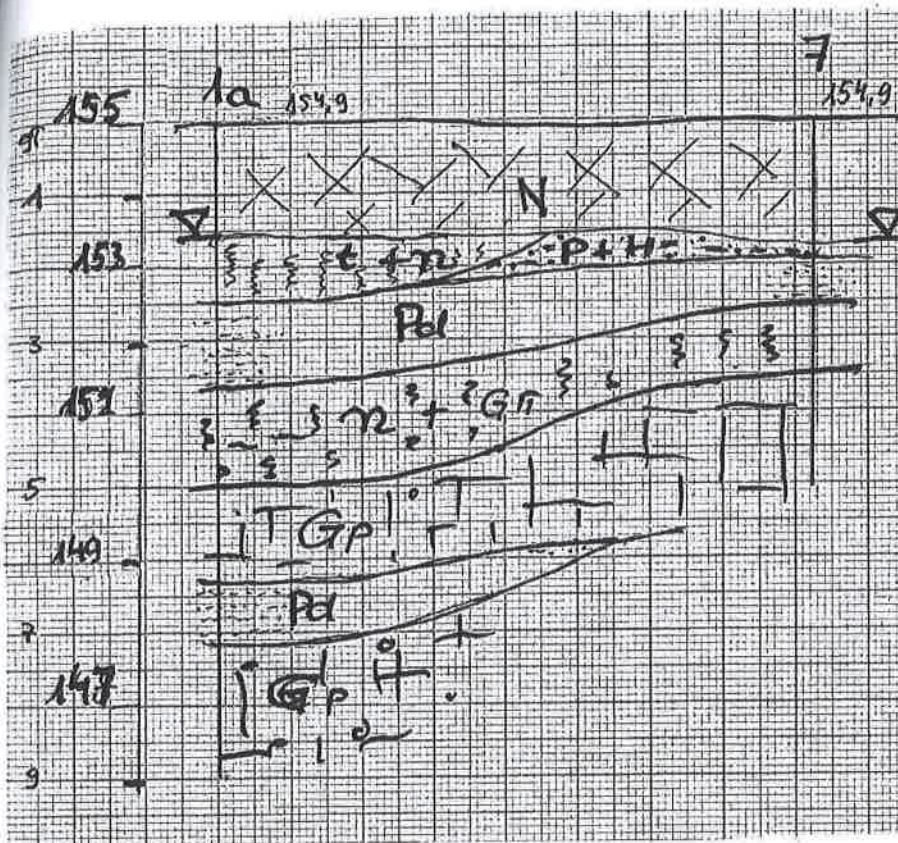 7
1a 154,9 154,9
155
1
N
153 t + n P + H
Pd
3
151 n + Gπ
5
Gp
149
Pd
7
147 Gp
9